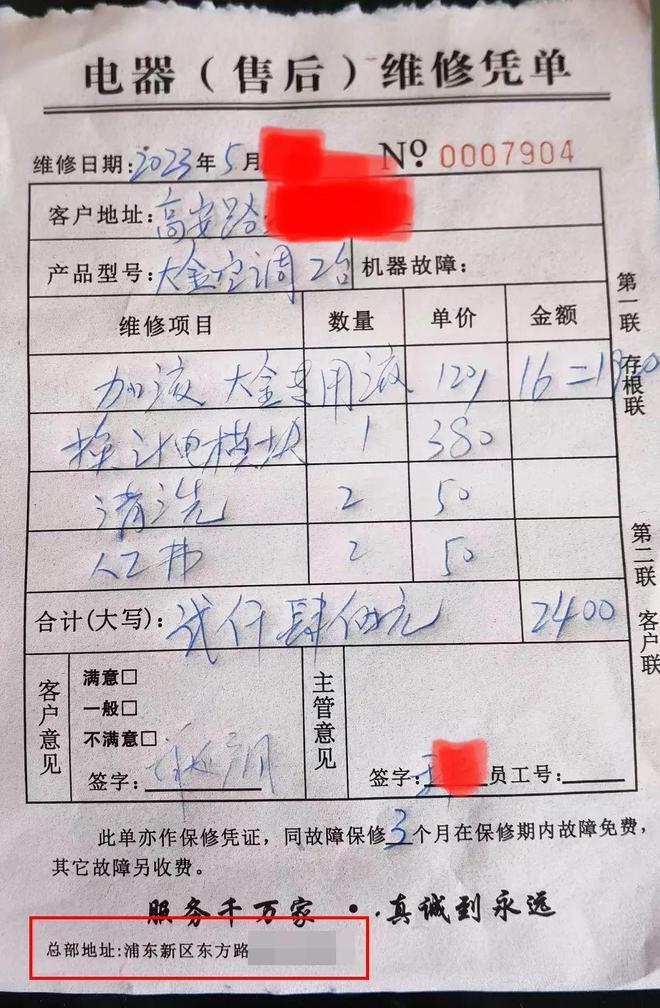 电器（售后）维修凭单
维修日期:2023年5月 № 0007904
客户地址:高安路
产品型号:大金空调 2台 机器故障:
维修项目 数量 单价 金额
加液 大金专用液 120 16=1920
换计电模块 1 380
清洗 2 50
人工费 2 50
合计(大写): 贰仟肆佰元 2400
客户意见
满意□
一般□
不满意□
签字:
主管意见
签字: 员工号:
第一联 存根联
第二联 客户联
此单亦作保修凭证，同故障保修3个月在保修期内故障免费，
其它故障另收费。
服务千万家 · 真诚到永远
总部地址:浦东新区东方路